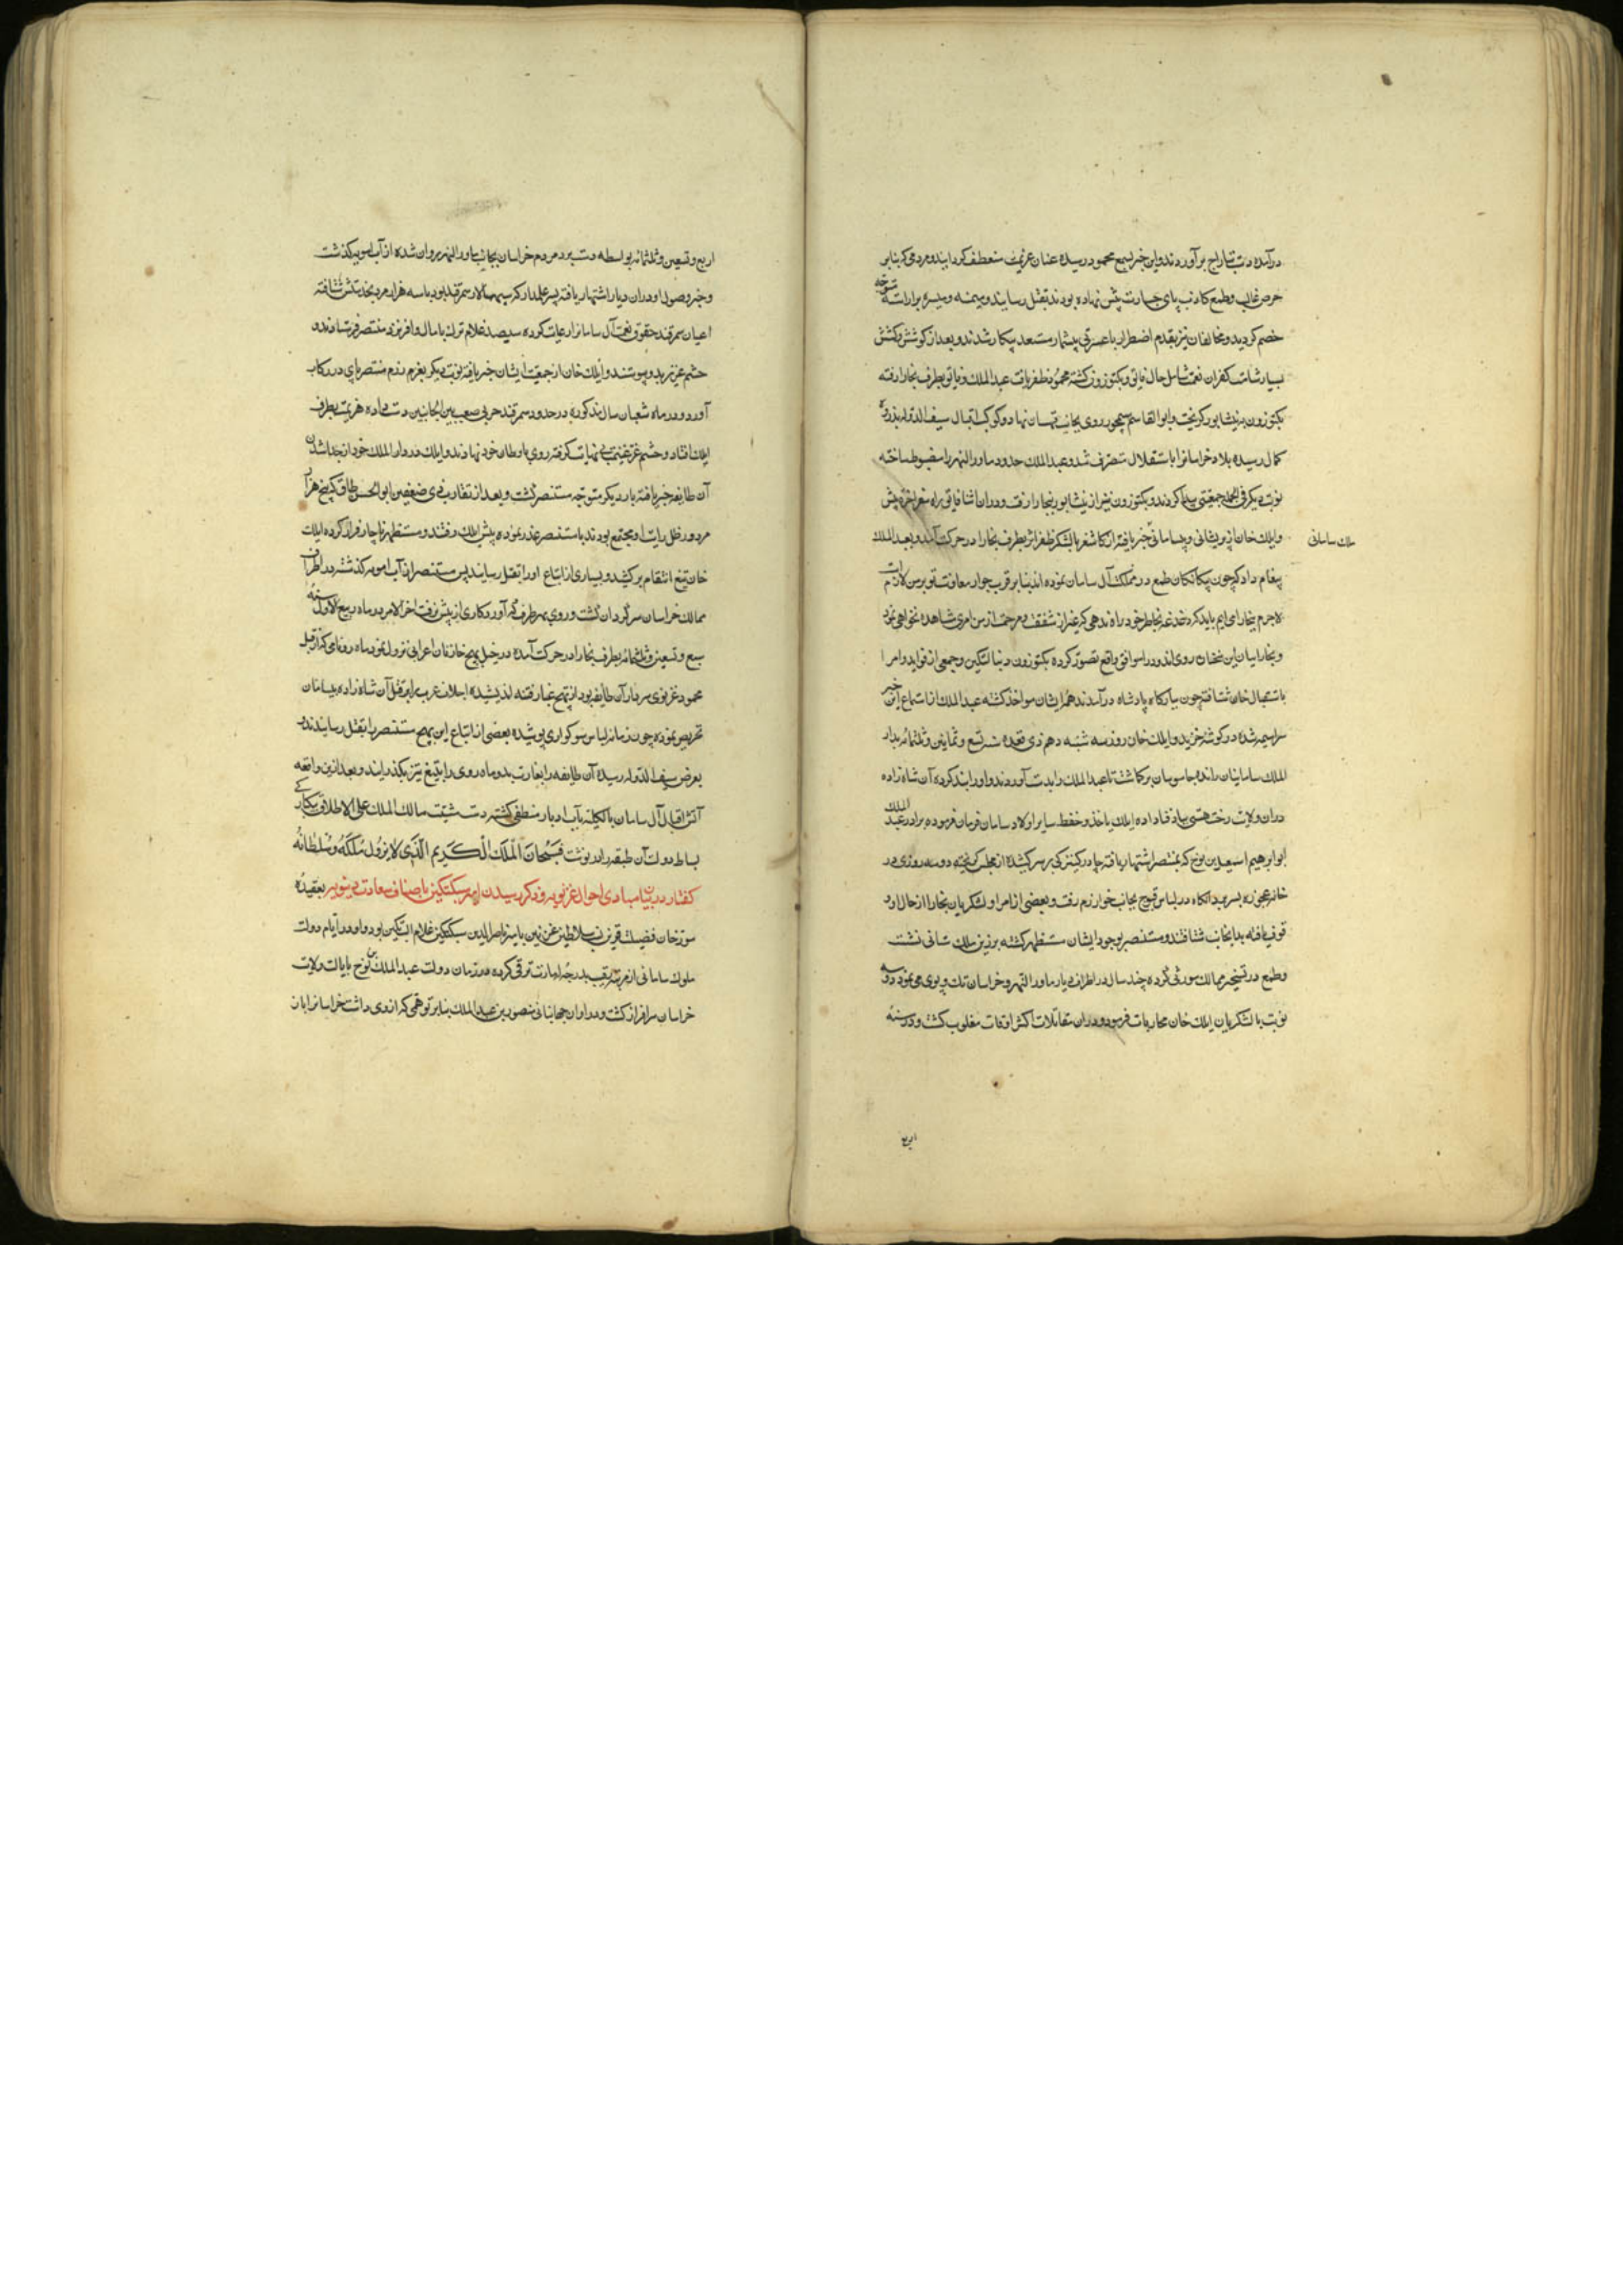 درآمده دست بتاراج برآوردند و این خبر بسمع محمود رسیده عنان عزیمت منعطف گردانیده و مردمی که بنابر
حرص غالب و طمع کاذب پای جسارت پیش نهاده بودند بقتل رسانید و میمنه و میسره بیاراسته متوجه
خصم گردید و مخالفان نیز بقدم اضطرار با عسرتی بیشمار مستعد پیکار شدند و بعد از کوشش و کشش
بسیار شامت کفران نعمت شامل حال فایق و بکتوزون گشته محمود ظفر یافت عبدالملک و فایق بطرف بخارا رفته
بکتوزون به نیشابور گریخت و ابوالقاسم سیمجور روی بجانب قهستان نهاد و کوکب اقبال سیف الدوله بذروه
کمال رسیده بلاد خراسانرا باستقلال متصرف شد و عبدالملک حدود ماوراالنهر را مضبوط ساخته
نوبت دیگر فی الجمله جمعیتی پیدا کردند و بکتوزون نیز از نیشابور ببخارا رفت و در ان اثنا فایق راه سفر اخرة پیش
وایلک خان از پریشانی و بیسامانی خبر یافته از کاشغر بالشکر ظفر اثر بطرف بخارا در حرکت آمد و بعبد الملک
ملک سامانی
پیغام داد که چون بیکانکان طمع در مملکت آل سامان نموده اند بنابر قرب جوار معاونت تو بر من لازم است
لاجرم ببخارا می ایم باید که دغدغه بخاطر خود راه ندهی که غیر از شفقت و مرحمت از من امری مشاهده نخواهی نمود
و بخاراییان این سخنان روی اندود را موافق واقع تصور کرده بکتوزون و ینالتکین و جمعی از قواید و امرا
باستقبال خان شتافتند چون ببارگاه پادشاه درآمدند همه ایشان مواخذ گشته عبد الملک از استماع این خبر
سراسیمه شده در گوشه خزید و ایلک خان روز سه شنبه دهم ذی قعده سنه تسع و ثمانین و ثلثمائه بدار
الملک سامانیان رانده جاسوسان برگماشت تا عبد الملک را بدست آوردند و اورا بند کرده آن شاه زاده
دران ولایت رخت هستی بباد فنا داده ایلک باخذ و حفظ سایر اولاد سامان فرمان فرموده برادر عبد الملک
ابوابرهیم اسمعیل بن نوح که بمنتصر اشتهار یافته چادر کنیزکی بر سر کشیده از مجلس گریخته دو سه روزی در
خانه عجوزه بسر برد انکاه در لباس قبیح بجانب خوارزم رفت و بعضی از امرا و لشکریان بخارا از حال او
وقوف یافته بدانجانب شتافتند و مستنصر بوجود ایشان مستظهر گشته برزین ملک ستانی نشست
و طمع در تسخیر ممالک موروثی کرده چند سال در اطراف دیار ماورا النهر و خراسان تک و پوی می نمود دو سه
نوبت با لشکریان ایلک خان محاربات فرمود و دران مقاتلات اکثر اوقات مغلوب گشت و در سنه
اربع
اربع و تسعین و ثلثمائه بواسطه دست برد مردم خراسان بجانب ماورالنهر روان شده از آب امویه گذشت
و خبر وصول او دران دیار اشتهار یافته پسر علمدار که سپهسالار سمرقند بود با سه هزار مرد بخدمتش شتافته
اعیان سمرقند حقوق نعمت آل سامانرا رعایت کرده سیصد غلام ترک با مال وافر نزد منتصر فرستادند و
حشم غز نیز بدو پیوستند و ایلک خان از جمعیت ایشان خبر یافته نوبت دیگر بعزم رزم منتصر پای در رکاب
آورد و در ماه شعبان سال مذکوره در حدود سمرقند حربی صعب بین الجانبین دست داده هزیمت بطرف
ایلک افتاد و حشم غز غنیمت بی نهایت گرفته روی باوطان خود نهادند و ایلک در دار الملک خود از جدا شدن
آن طایفه خبر یافته بار دیگر متوجه مستنصر گشت و بعد از تقارب فئتین ابوالحسن طاق که پنج هزار
مرد در ظل رایت او مجتمع بودند با مستنصر غدر نموده پیش ایلک رفتند و مستظهر ناچار فرار کرده ایلک
خان تیغ انتقام برکشید و بسیاری از اتباع اورا بقتل رسانید پس مستنصر از آب امویه گذشته در اطراف
ممالک خراسان سرگردان گشت و روی بهر طرف که آورد کاری از پیش نرفت اخر الامر در ماه ربیع الاول سنه
سبع و تسعین و ثلثمائه بطرف بخارا در حرکت آمده در خیل بهیج خانه فان اعرابی نزول نمود ماه روی نامی که از قبل
محمود غزنوی سردار آن طایفه بود از بهیج غبار فتنه اندیشیده اجلاف عرب را بر قتل آن شاه زاده بیسامان
تحریص نموده چون زمانه لباس سوکواری پوشیده بعضی از اتباع ابن بهیج مستنصر را بقتل رسانیدند و
بعرض سیف الدوله رسیده آن طایفه را بغارت بد و ماه روی را بتیغ تیز بگذرانید و بعد از این واقعه
آتش اقبال آل سامان بالکلیه بآب ادبار منطفی گشته دست مشیت مالک الملک علی الاطلاق یکبارگی
بساط دولت آن طبقه را در نوشت فسبحان الملک الکریم الذی لا یزول ملکه و سلطانه
گفتار در بیان مبادی احوال غزنویه و ذکر رسیدن امیر سبکتکین باصناف سعادت دنیویه بعقیده
مورخان فضیلت قرین نسب سلاطین غزنین بامیر ناصر الدین سبکتکین غلام البتکین بود و او در ایام دولت
ملوک سامانی از مرتبه رقیت بدرجه امارت ترقی کرده در زمان دولت عبد الملک بن نوح بایالت ولایت
خراسان سرافراز گشت و در اوان جهانبانی منصور بن عبد الملک بنابر توهمی که از وی داشت خراسانرا باز